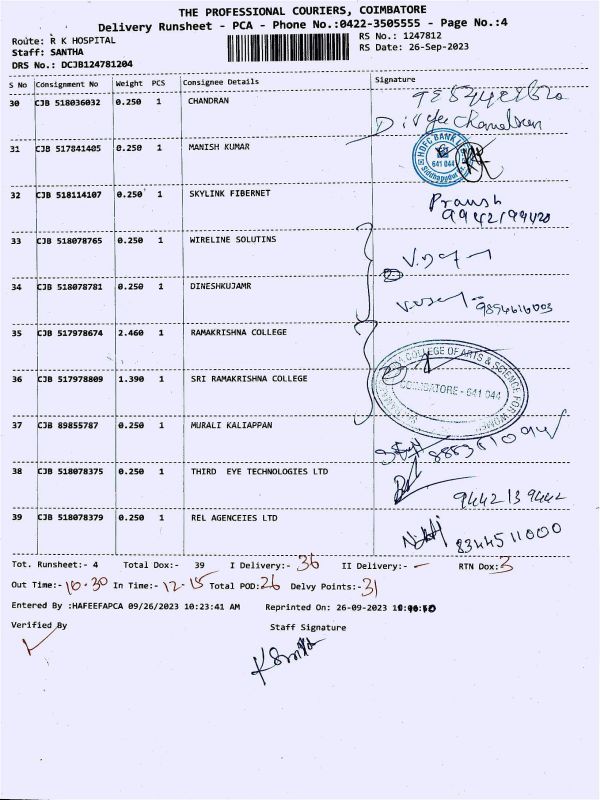 THE PROFESSIONAL COURIERS, COIMBATORE
Delivery Runsheet - PCA - Phone No.:0422-3505555 - Page No.:4
Route: R K HOSPITAL
RS No.: 1247812
Staff: SANTHA
RS Date: 26-Sep-2023
DRS No.: DCJB124781204
S No Consignment No Weight PCS Consignee Details Signature
30 CJB 518036032 0.250 1 CHANDRAN
31 CJB 517841405 0.250 1 MANISH KUMAR
HDFC BANK
641 044
32 CJB 518114107 0.250 1 SKYLINK FIBERNET
33 CJB 518078765 0.250 1 WIRELINE SOLUTINS
34 CJB 518078781 0.250 1 DINESHKUJAMR
35 CJB 517978674 2.460 1 RAMAKRISHNA COLLEGE
COLLEGE OF ARTS & SCIENCE FOR WOMEN
36 CJB 517978809 1.390 1 SRI RAMAKRISHNA COLLEGE
COIMBATORE - 641 044
37 CJB 89855787 0.250 1 MURALI KALIAPPAN
38 CJB 518078375 0.250 1 THIRD EYE TECHNOLOGIES LTD
9442139442
39 CJB 518078379 0.250 1 REL AGENCEIES LTD
8344511000
Tot. Runsheet:- 4 Total Dox:- 39 I Delivery:- 36 II Delivery:- - RTN Dox:- 3
Out Time:- 10.30 In Time:- 12.15 Total POD: 26 Delvy Points:- 31
Entered By :HAFEEFAPCA 09/26/2023 10:23:41 AM Reprinted On: 26-09-2023
Verified By Staff Signature